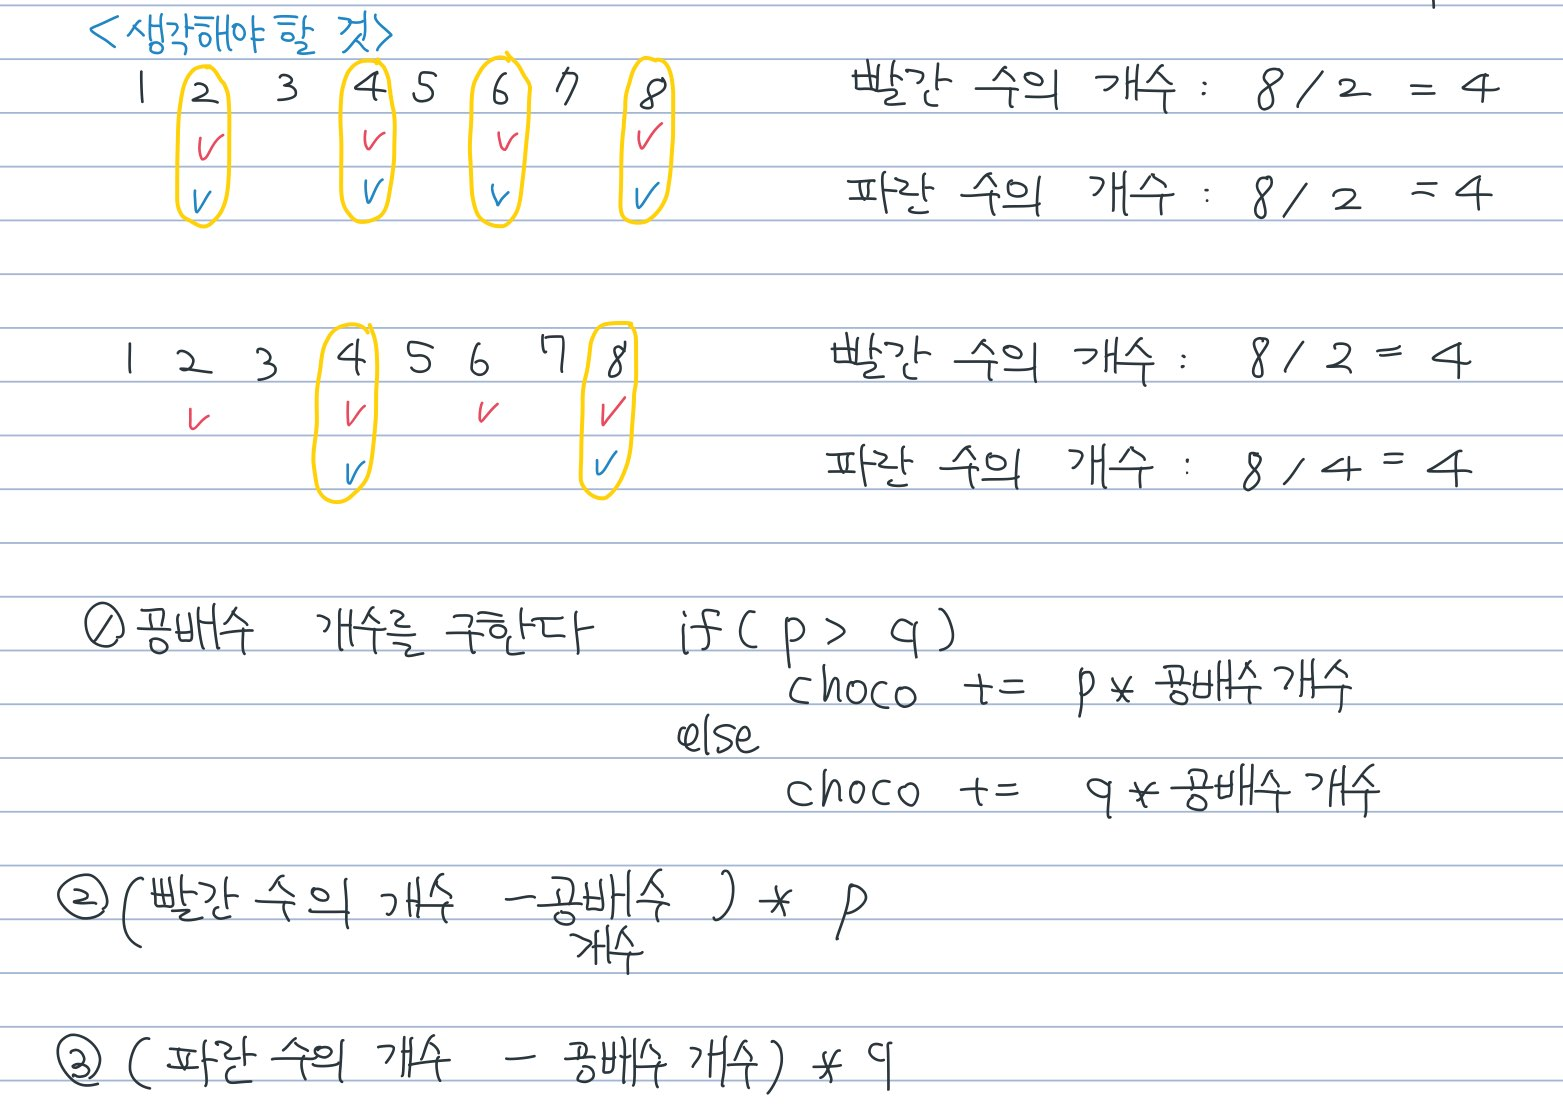 <생각해야 할 것>
1 2 3 4 5 6 7 8
빨간 수의 개수 : 8 / 2 = 4
파란 수의 개수 : 8 / 2 = 4
1 2 3 4 5 6 7 8
빨간 수의 개수 : 8 / 2 = 4
파란 수의 개수 : 8 / 4 = 4
① 공배수 개수를 구한다 if ( p > q )
choco += p * 공배수 개수
else
choco += q * 공배수 개수
② (빨간 수의 개수 - 공배수 ) * p
개수
③ ( 파란 수의 개수 - 공배수 개수) * q